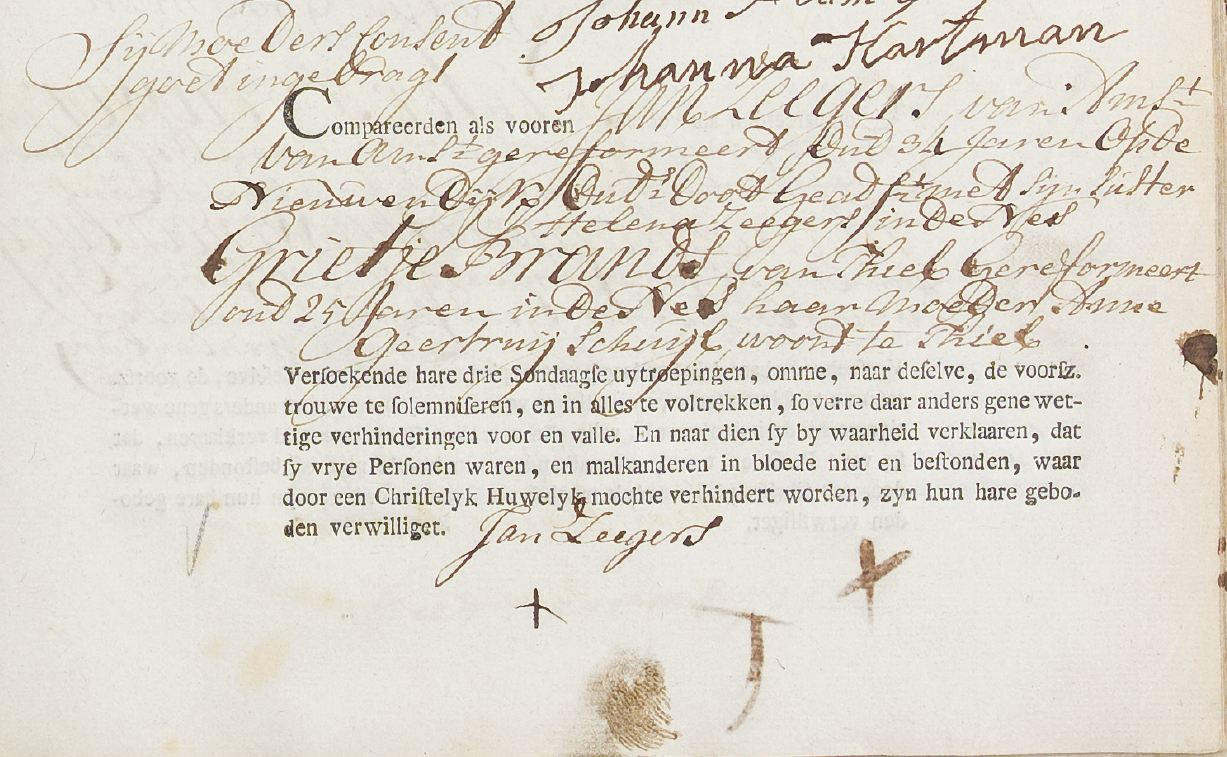 Johann
Sij Moeders Consent
goet ingebragt
Johanna Hartman
Compareerden als vooren Jan Zeegers van Amst
van Amst gereformeert Oud 34 Jaren Op de
Nieuwendijk Ouds Doot Geads met sijn Suster
Helena Zeegers in de Nes
Grietje Brands van Thiel Gereformeert
oud 25 Jaren in de Nes haar Moeder Anne
Geertruij Schuijt woont te Thiel
Versoekende hare drie Sondaagse uytroepingen, omme, naar deselve, de voorsz.
trouwe te solemniseren, en in alles te voltrekken, so verre daar anders gene wet-
tige verhinderingen voor en valle. En naar dien sy by waarheid verklaaren, dat
sy vrye Personen waren, en malkanderen in bloede niet en bestonden, waar
door een Christelyk Huwelyk mochte verhindert worden, zyn hun hare gebo-
den verwilliget.
Jan Zeegers